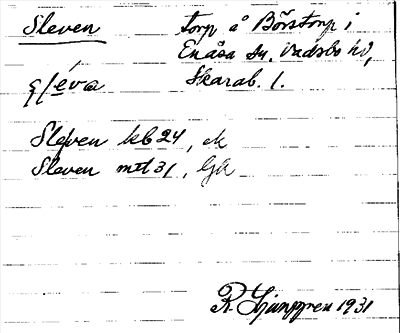 Sleven torp å Börstorp i
Enåsa sn, Vadsbo hd,
Skarab. l.
Sleven kb 24, ek
Sleven mtl 31, GK
R. Ljunggren 1931